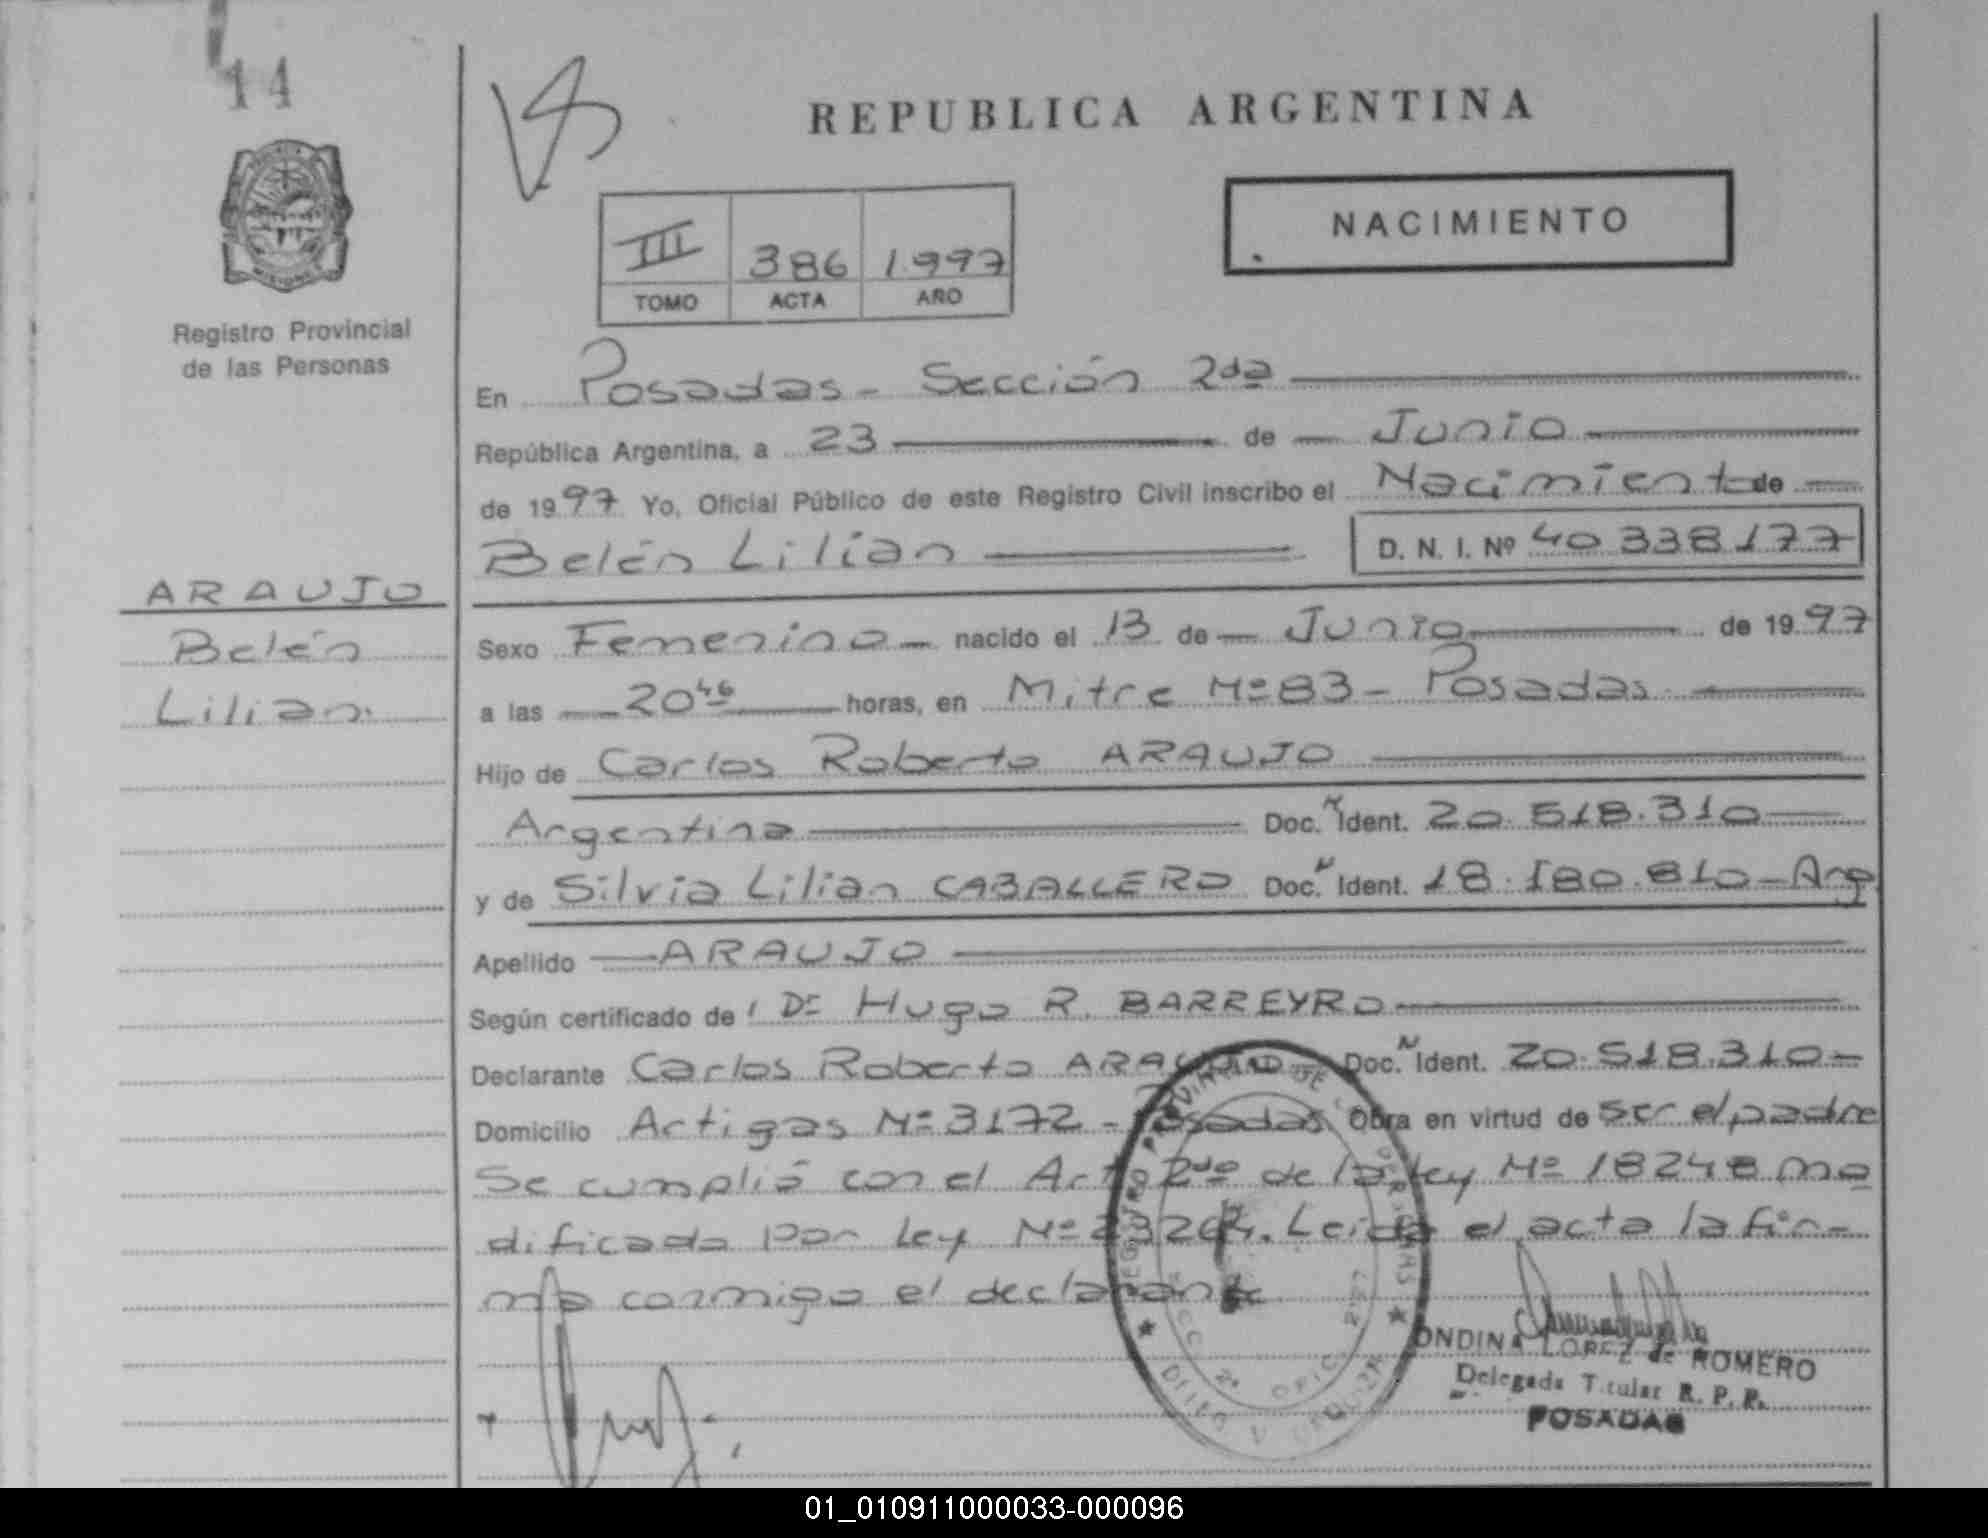 14
REPUBLICA ARGENTINA
NACIMIENTO
III 386 1.997
TOMO ACTA AÑO
Registro Provincial
de las Personas
En Posadas - Sección 2da
República Argentina, a 23 de Junio
de 1997 Yo, Oficial Público de este Registro Civil inscribo el Nacimiento de
Belén Lilian D. N. I. Nº 40 338 177
ARAUJO
Belén
Lilian.
Sexo Femenino - nacido el 13 de Junio de 1997
a las 20 46 horas, en Mitre Nº 83 - Posadas
Hijo de Carlos Roberto ARAUJO
Argentina Doc. N Ident. 20.518.310
y de Silvia Lilian CABALLERO Doc. N Ident. 18.180.810 - Arg
Apellido ARAUJO
Según certificado de Dr Hugo R. BARREYRO
Declarante Carlos Roberto ARAUJO Doc. N Ident. 20.518.310 -
Domicilio Artigas Nº 3172 - Posadas Obra en virtud de ser el padre
Se cumplió con el Arto 2do de la ley Nº 18248 mo
dificado por ley Nº 23264. Leida el acta la fir-
ma conmigo el declarante
REGISTRO PROVINCIAL DE LAS PERSONAS
SECC. 2ª OFIC.
ONDINA LOPEZ de ROMERO
Delegada Titular R. P. P.
POSADAS
01_010911000033-000096